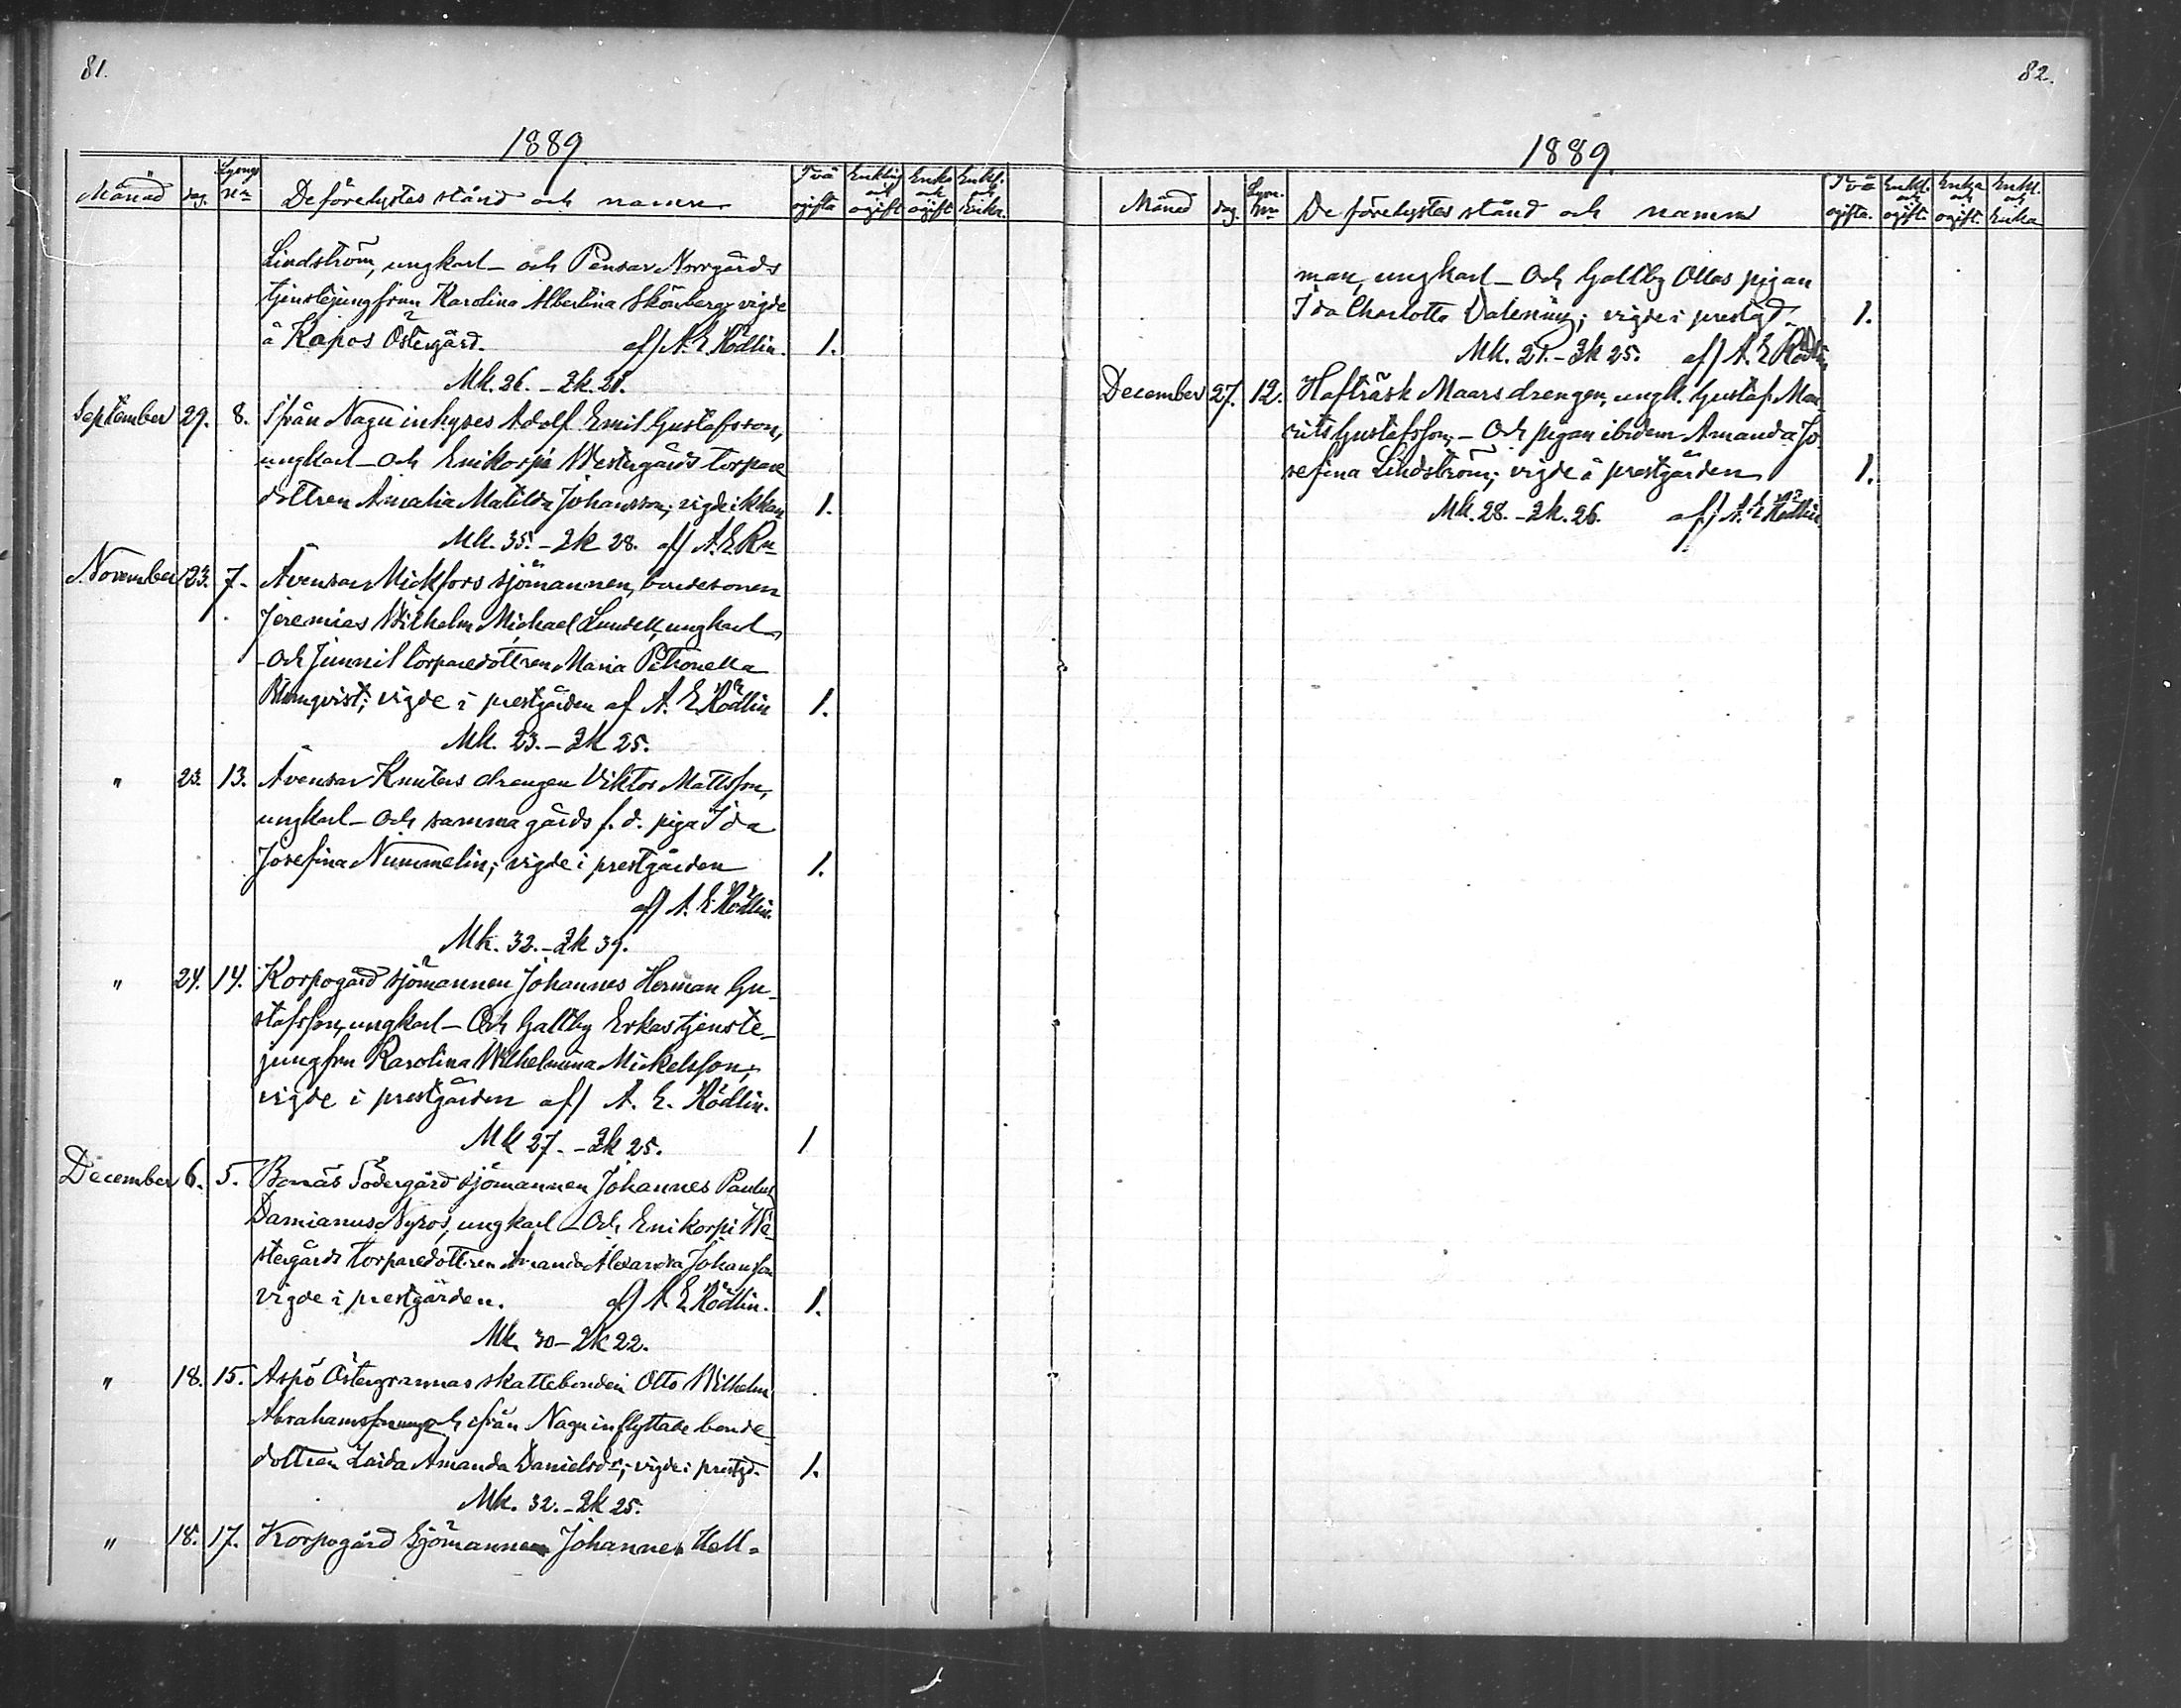 81.
1889.
Månad dag. Lysngs Nr De förelystes stånd och namn Två ogifta Enkling och ogift Enka och ogift Enkl. och Enka.
Lindström, ungkarl – och Pensar Norrgårds
tjenstejungfrun Karolina Albertina Skönberg; vigde
å Kapos Östergård. af A. E. Rödlin. 1.
Mk. 26. – Qk. 21.
September 29. 8. Ifrån Nagu inhyses Adolf Emil Gustafsson,
ungkarl – och Enikorpi Westergårds torpare
dottren Amalia Matilda Johansson; vigde i kkan 1.
Mk. 35. – Qk 28. af A. E. Rn
November 23. 7. Åvensar Mickfors sjömannen, bondesonen
Jeremias Wilhelm Michael Lundell, ungkarl
– Och Junnil torparedottren Maria Petronella
Blomqvist; vigde i prestgården af A. E. Rödlin 1.
Mk. 23. – Qk 25.
" 23. 13. Åvensar Knuters drengen Viktor Mattsson,
ungkarl – Och samma gårds f. d. piga Ida
Josefina Nummelin; vigde i prestgården 1.
af A. E. Rödlin.
Mk. 32. – Qk 39.
" 24. 14. Korpogård sjömannen Johannes Herman Gu-
stafsson, ungkarl – Och Galtby Erkas tjenste-
jungfru Karolina Wilhelmina Mickelsson;
vigde i prestgården af A. E. Rödlin.
Mk 27. – Qk 25. 1
December 6. 5. Bonäs Södergård sjömannen Johannes Paulus
Damianus Nyros, ungkarl – Och Enikorpi We-
stergårds torparedottren Amanda Alexandra Johansson
vigde i prestgården. af A. E. Rödlin. 1.
Mk. 30 – Qk 22.
" 18. 15. Aspö Östergrannas skattebonden Otto Wilhelm
Abrahamsson och ifrån Nagu inflyttade bonde-
dottren Amanda Danielsdr; vigde i prestgd. 1.
Mk. 32. – Qk 25.
" 18. 17. Korpogård Sjömannen Johannes Hell-
82.
1889.
Månad dag. Lysn. Nr De förelystes stånd och namn Två ogifta. Enkl. och ogift. Enka och ogift. Enkl. och Enka
man, ungkarl – Och Galtby Ollas pigan
Ida Charlotta; vigde i prestgd. 1.
Mk. 21. – Qk 25. af A. E. Rödlin
December 27. 12. Hafträsk Maars drengen, ungk. Gustaf Mau-
rits Gustafsson, – Och pigan ibidem Amanda Jo-
sefina Lindström; vigde å prestgården 1.
Mk. 28. – Qk. 26. af A. E. Rödlin